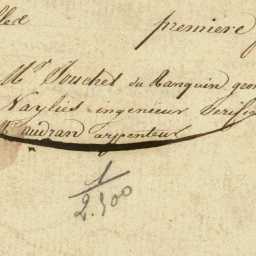 premiere
Mr. Touchet du Ranquin geo
Naylies ingenieur Verifi
Mr. audran arpenteur
1
2.500